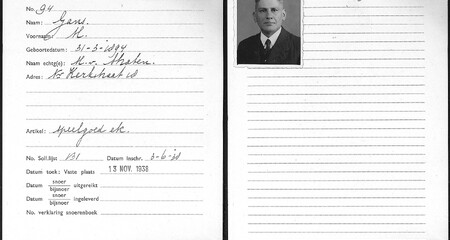 No. 94
Naam: Gans.
Voornamen: M.
Geboortedatum: 31-3-1894
Naam echtg(e):
Adres: Nw Kerkstraat 18
Artikel: speelgoed etc.
No. Soll.lijst 131 Datum inschr. 3-6-38
Datum toek: Vaste plaats 13 NOV. 1938
Datum snoer
bijsnoer uitgereikt
Datum snoer
bijsnoer ingeleverd
No. verklaring snoerenboek